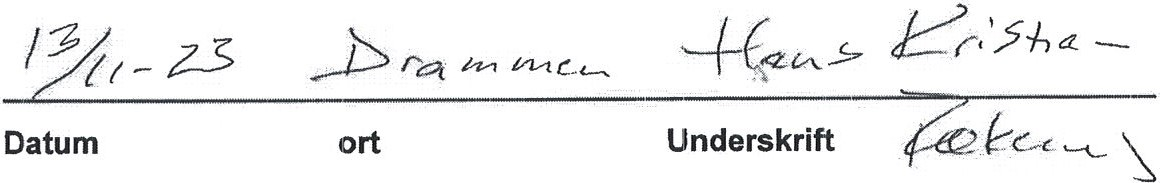 13/11-23 Drammen Hans Kristia-
Datum ort Underskrift